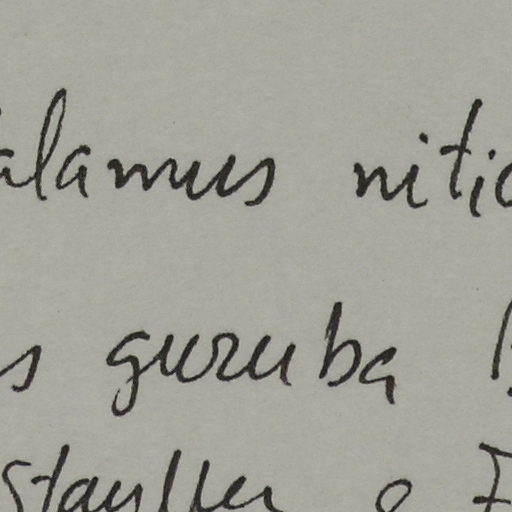 alamus nitid
s guruba B
Stauffer & F